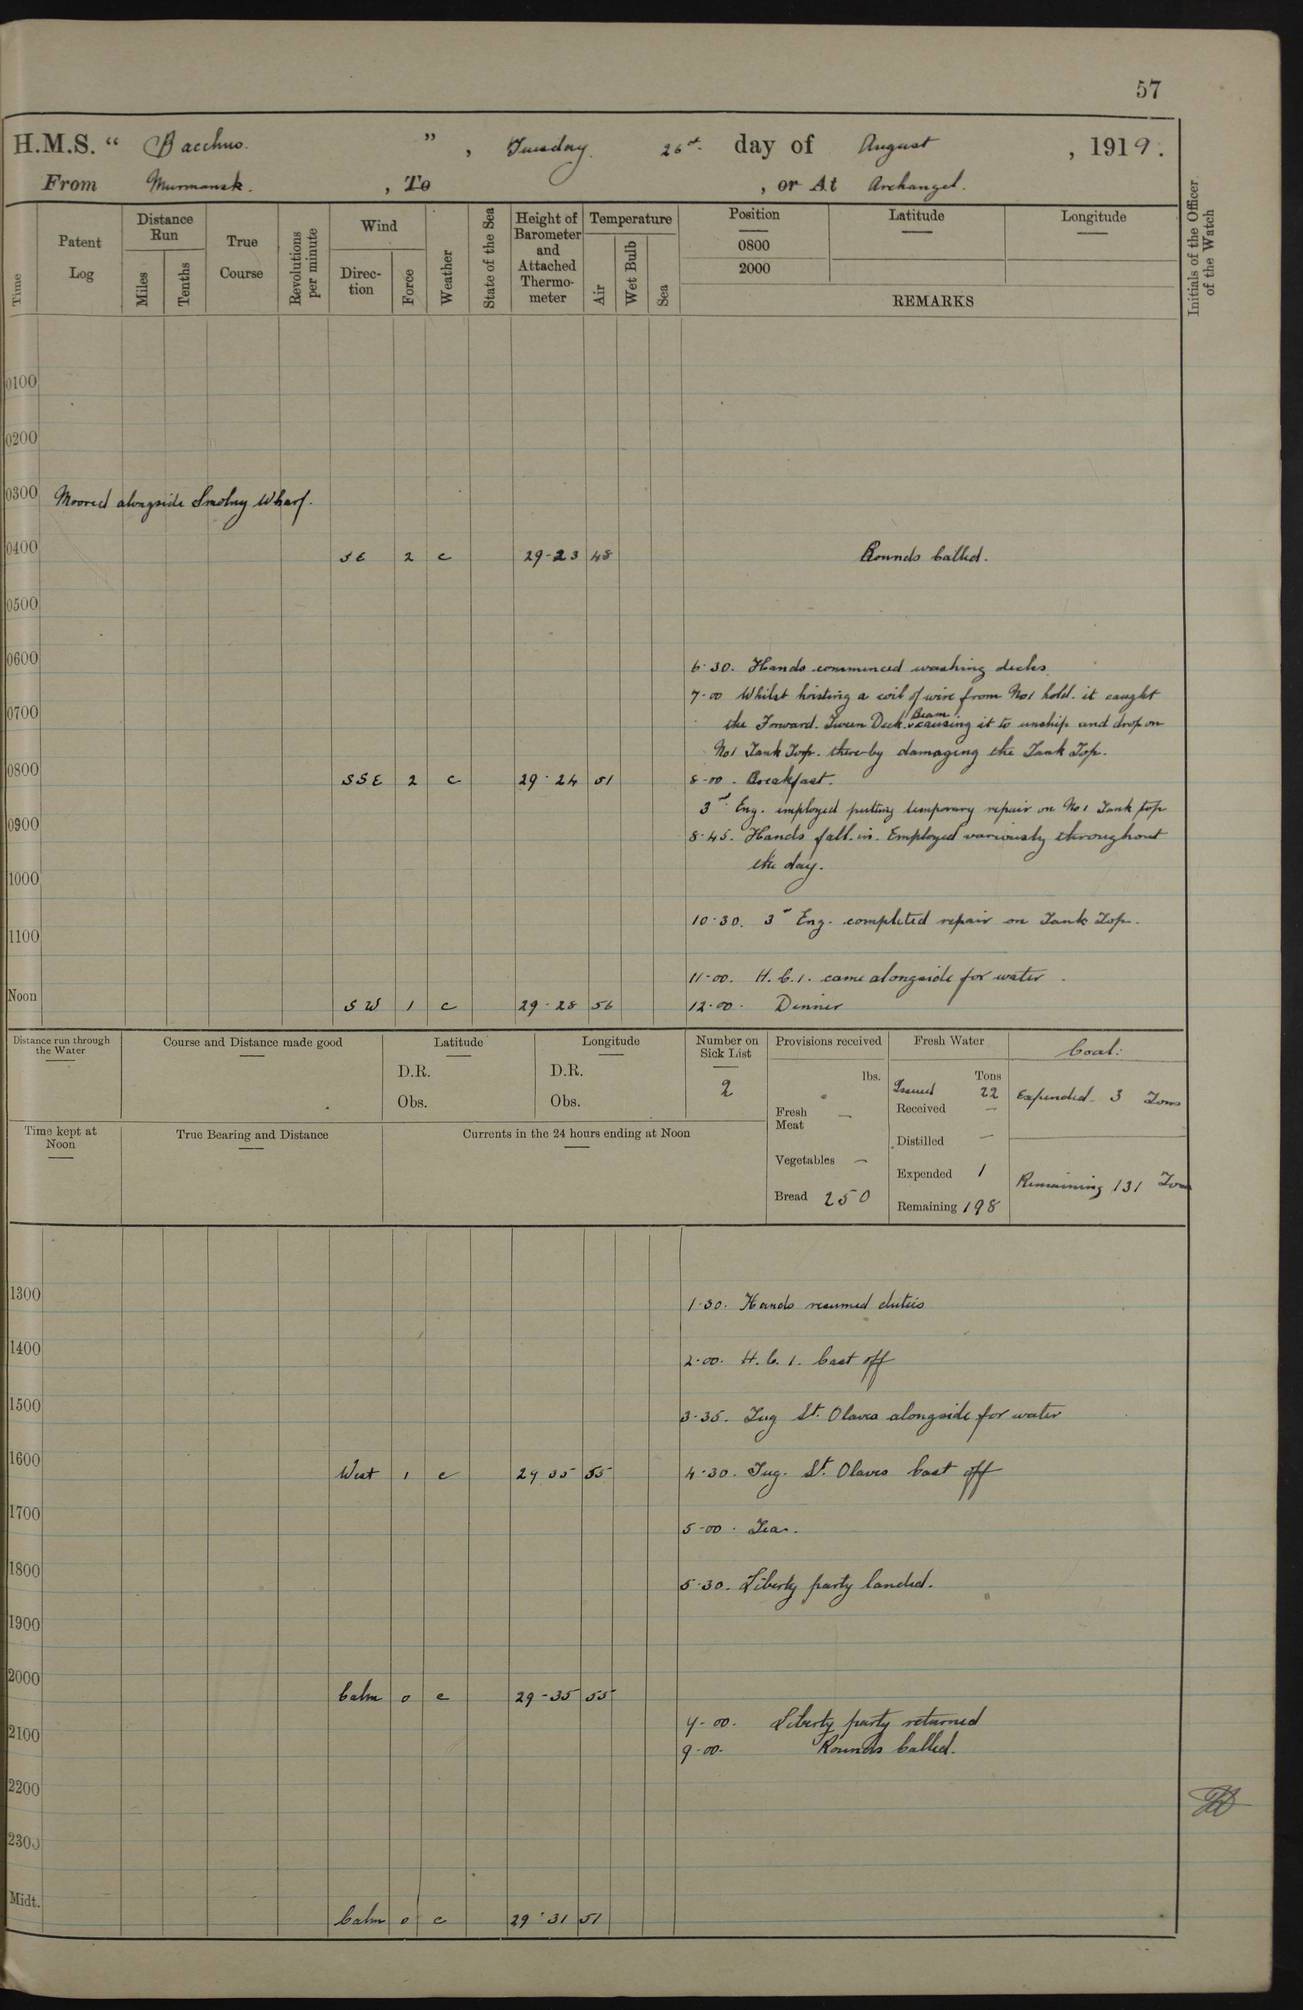 57
H.M.S. “ Bacchus. ” , Tuesday. 26th day of August , 1919.
From Murmansk. , To , or At Archangel.
Time
Patent Log
Distance Run
Miles
Tenths
True Course
Revolutions per minute
Wind
Direction
Force
Weather
State of the Sea
Height of Barometer and Attached Thermometer
Temperature
Air
Wet Bulb
Sea
Position
0800
2000
Latitude
Longitude
REMARKS
Initials of the Officer of the Watch
0100
0200
0300 Moored alongside Smolny Wharf.
0400 SE 2 c 29-23 48 Rounds Called.
0500
0600
6.30. Hands commenced washing decks
7-00 Whilst hoisting a coil of wire from No1 hold. it caught
0700
the Forward. Tween Deck. Beam causing it to unship and drop on
No1 Tank Top. thereby damaging the Tank Top.
0800 SSE 2 c 29.24 51 8-00. Breakfast.
3rd Eng. employed putting temporary repair on No1 Tank top
0900
8.45. Hands fall in. Employed variously throughout
the day.
1000
10.30. 3rd Eng. completed repair on Tank Top.
1100
11-00. H.C.1. came alongside for water.
Noon SW 1 c 29-28 56 12.00. Dinner
Distance run through the Water
Course and Distance made good
Latitude
D.R.
Obs.
Longitude
D.R.
Obs.
Number on Sick List
2
Provisions received
lbs.
Fresh Meat —
Vegetables —
Bread 250
Fresh Water
Tons
Issued 22
Received —
Distilled —
Expended 1
Remaining 198
Coal:
Expended. 3 Tons
Remaining 131 Tons
Time kept at Noon
True Bearing and Distance
Currents in the 24 hours ending at Noon
1300
1.30. Hands resumed duties
1400
2.00. H.C.1. Cast off
1500
3.35. Tug St. Olaves alongside for water
1600 West 1 c 29 35 55 4.30. Tug. St. Olaves Cast off
1700
5-00. Tea.
1800
5.30. Liberty party landed.
1900
2000 Calm 0 c 29-35 55
9-00. Liberty party returned
2100
9-00. Rounds Called.
2200
2300
Midt. Calm 0 c 29.31 51